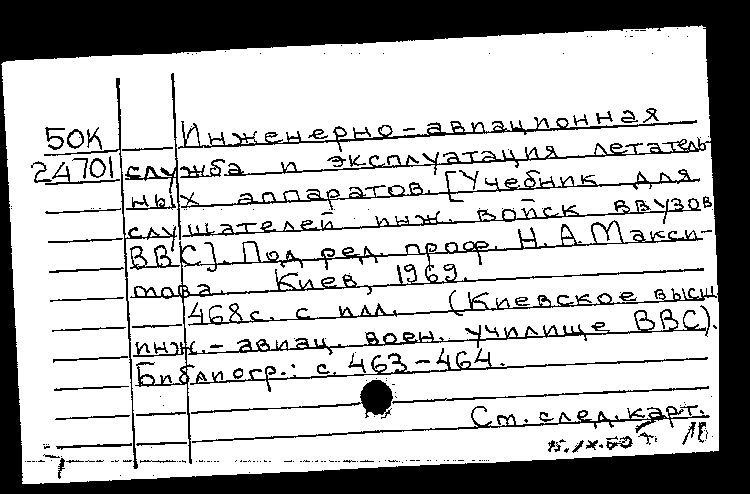 50К Инженерно-авиационная
24701 служба и эксплуатация летатель-
ных аппаратов. [Учебник для
слушателей инж. войск ввузов
ВВС]. Под ред. проф. Н.А.Макси-
мова. Киев, 1969.
468с. с илл. (Киевское высш
инж.-авиац. воен. училище ВВС).
Библиогр.: с. 463-464.
См. след. карт.
18